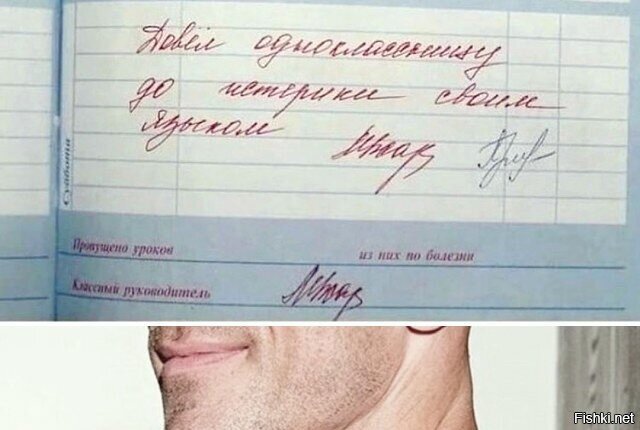 Довёл одноклассницу
до истерики своим
языком
Суббота
Пропущено уроков из них по болезни
Классный руководитель
Fishki.net